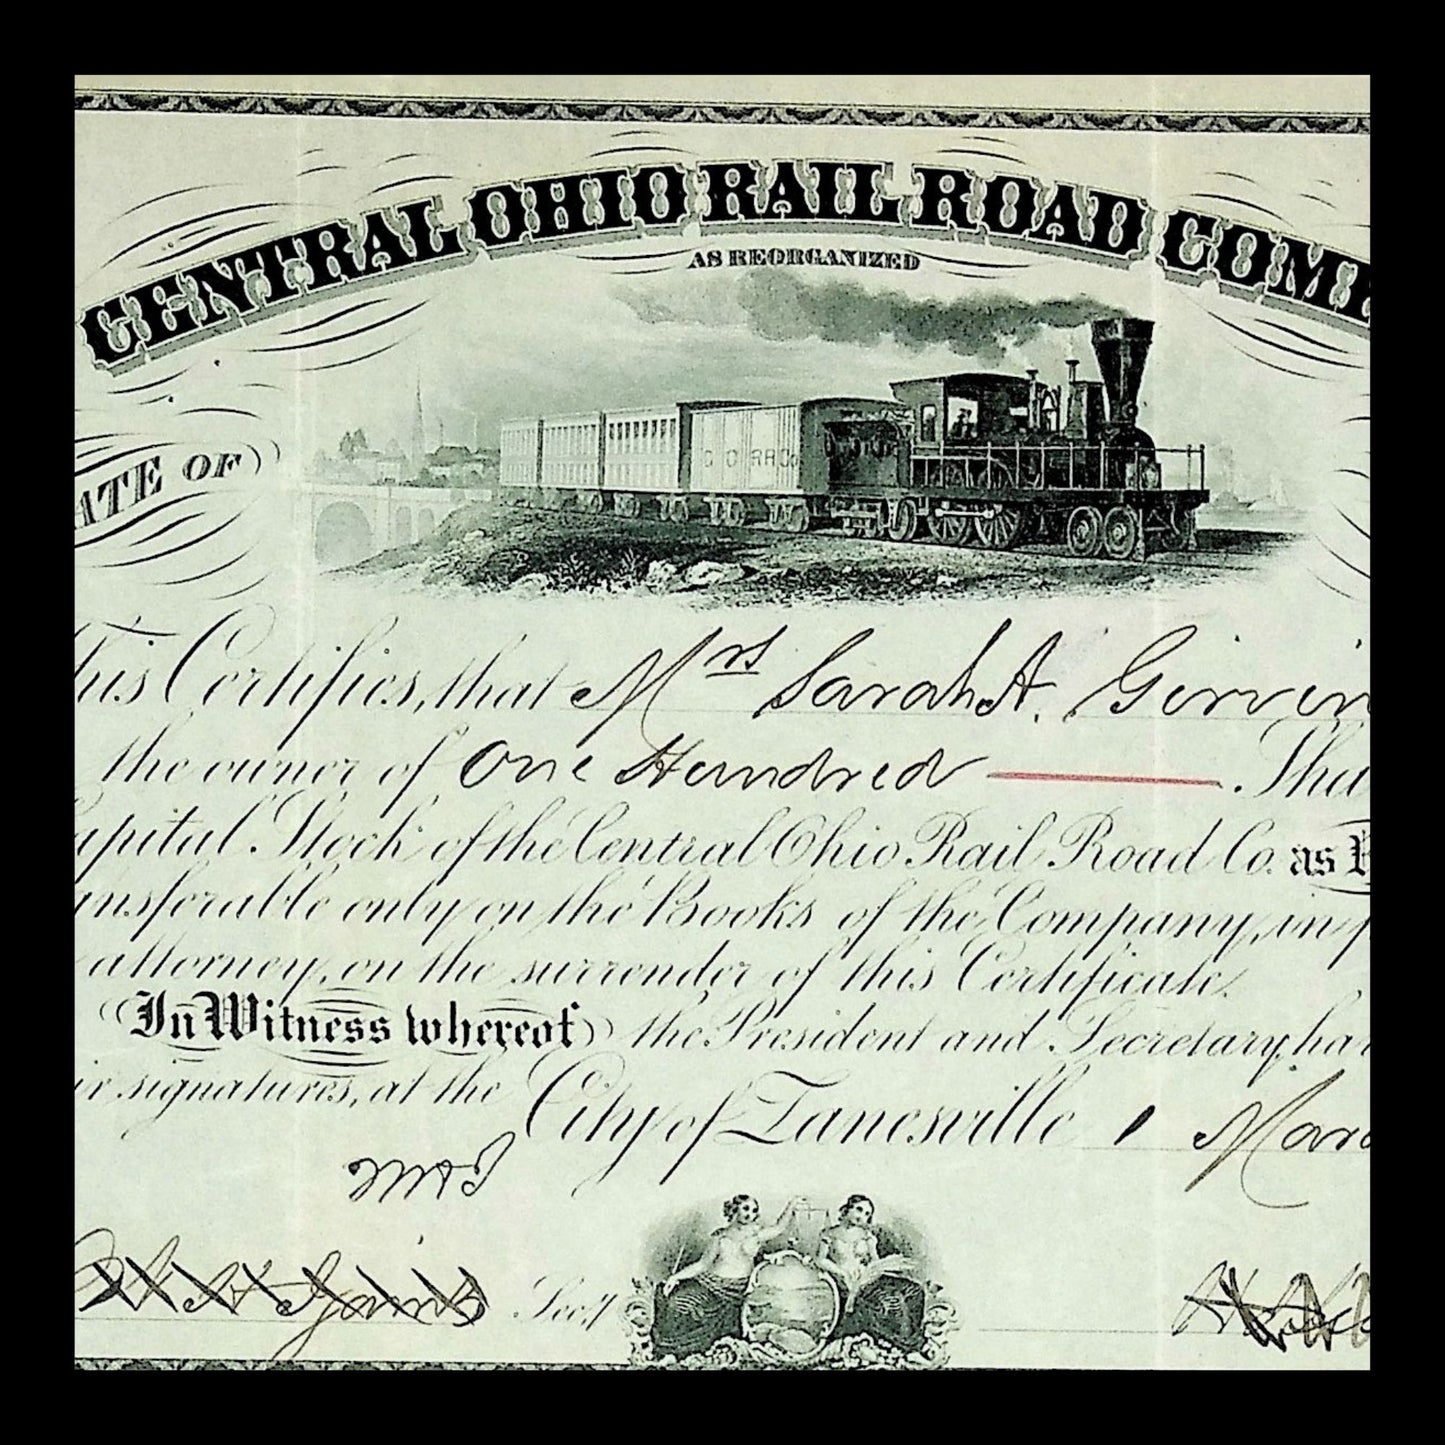 CENTRAL OHIO RAIL ROAD COMP
AS REORGANIZED
ATE OF
C O R R Co
This Certifies, that Mrs Sarah A. Girvin
the owner of One Hundred Sha
apital Stock of the Central Ohio Rail Road Co. as R
ansferable only on the Books of the Company, in p
attorney, on the surrender of this Certificate.
In Witness whereof the President and Secretary, ha
ir signatures, at the City of Zanesville 1 Marc
Secy